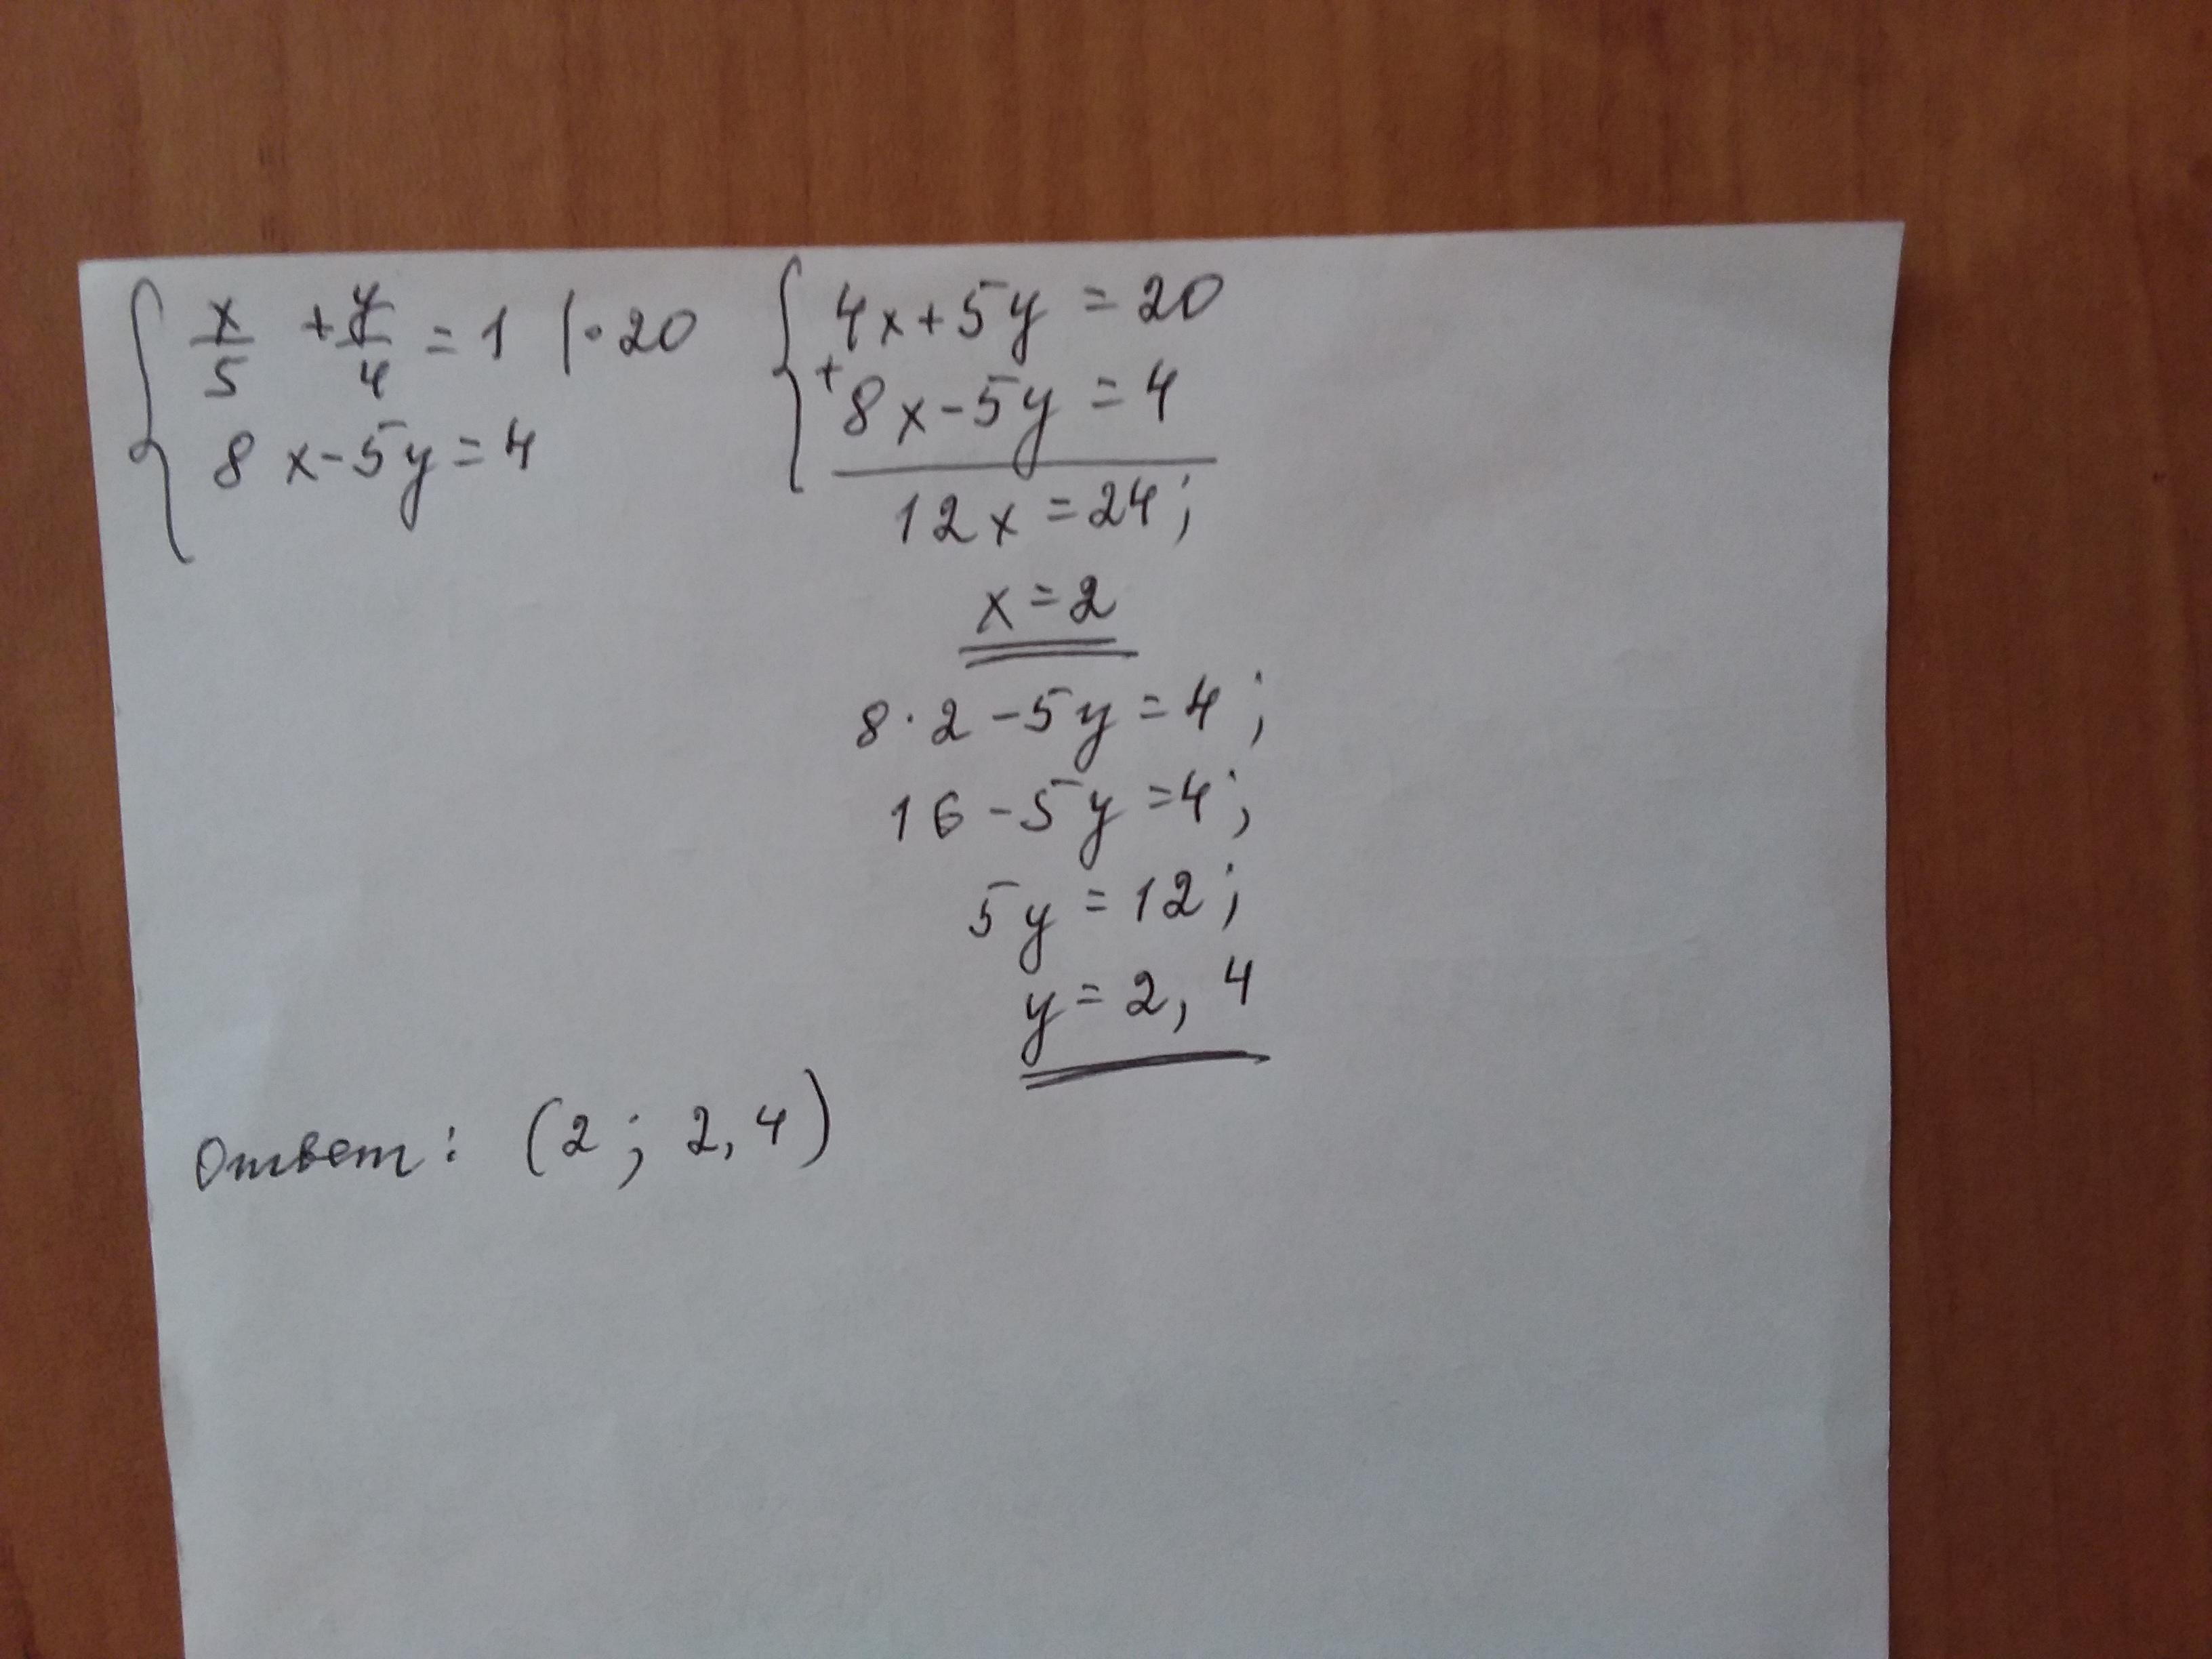 x/5 + y/4 = 1 |·20
8x-5y=4
4x+5y=20
+
8x-5y=4
12x=24;
x=2
8·2-5y=4;
16-5y=4;
5y=12;
y=2,4
Ответ: (2; 2,4)